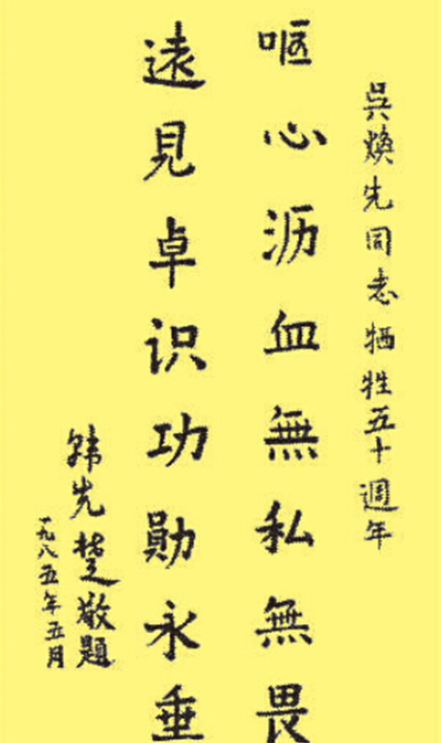 吳煥先同志牺牲五十週年
呕心沥血無私無畏
遠見卓识功勋永垂
韩先楚敬題
一九八五年五月